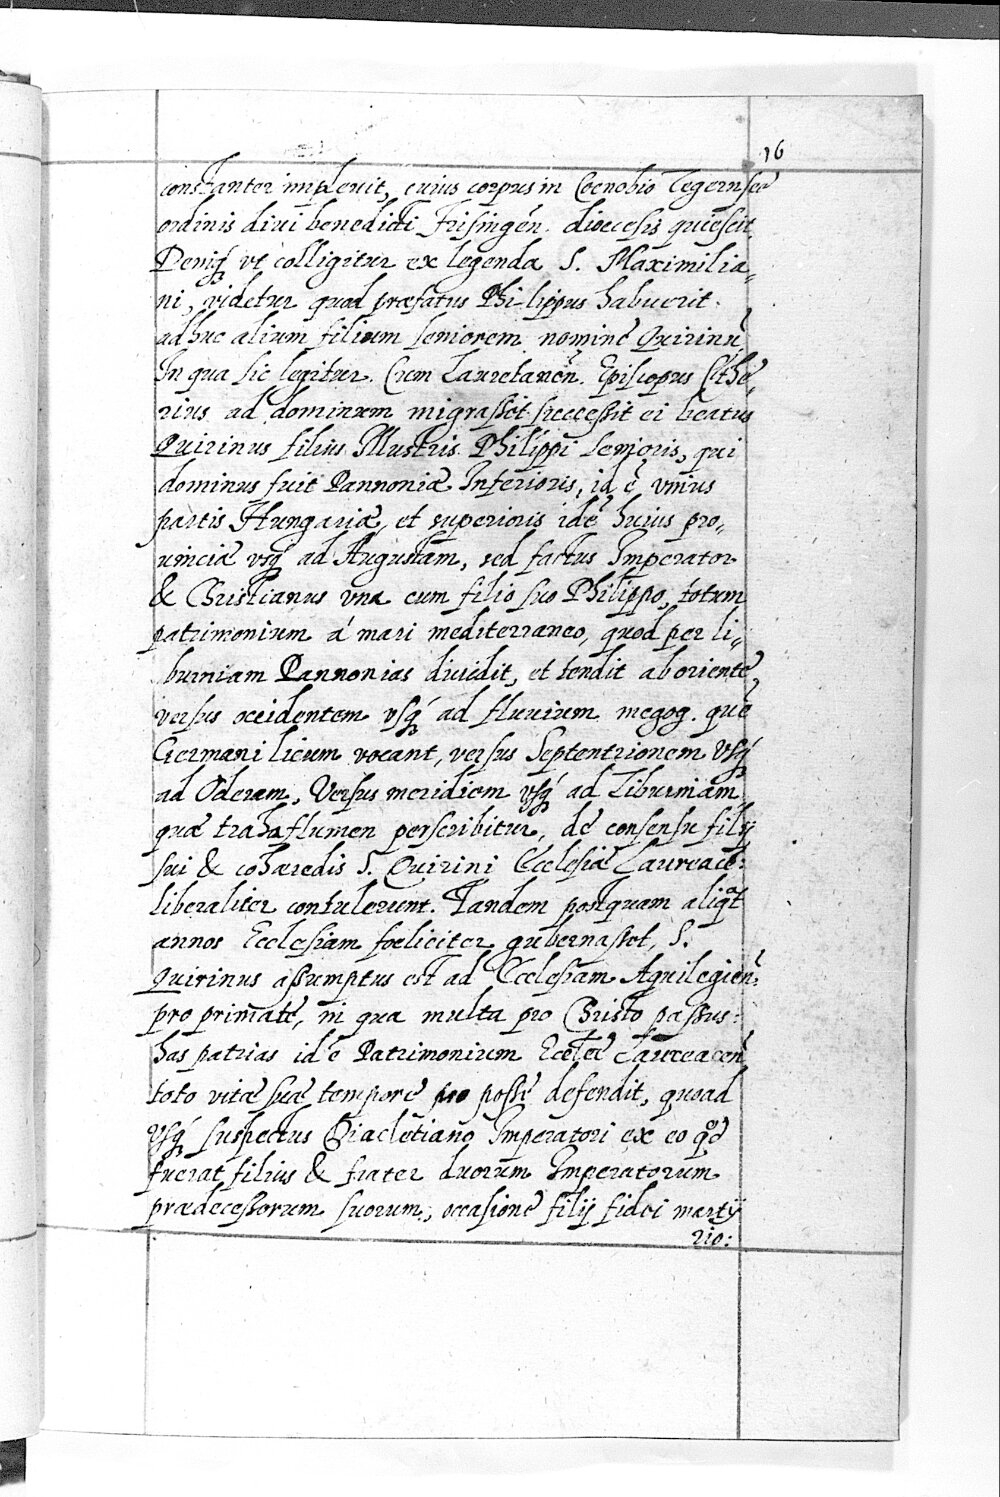 16
constanter implevit, cuius corpus in Coenobio Tegernsee
ordinis divi benedicti Frisingen̄. dioecesis quiescit,
Deniq́ vt colligitur ex legenda S. Maximilia„
ni, videtur quod præfatus Philippus habuerit.
adhuc alium filium seniorem nominē Quirinū,
In qua sic legitur. Cum Lauretanen̄. Episcopus Ethe„
rius ad dominum migrasset successit ei beatus
Quirinus filius Illustris Philippi Senioris, qui
dominus fuit Pannoniæ Inferioris, id ē vnius
partis Hungariæ, et superioris idē huius pro„
uinciæ vsq́ ad Augustam, sed factus Imperator
& Christianus vna cum filio suo Philippo, totum
patrimonium á mari mediterraneo, quod per li„
burniam Pannonias diuidit, et tendit ab oriente,
versus occidentem vsq́ ad fluuium megog. quē
Germani licum vocant, versus Septentrionem vsq́
ad Oderam, Versus meridiem vsq́ ad Liburniam,
quæ trahaflumen perscribitur, de consensu filij
sui & cohæredis S. Quirini Ecclesiæ Laureaceː
liberaliter contulerunt. Tandem postquam aliq̄t
annos Ecclesiam foeliciter gubernasset, S.
Quirinus assumptus est ad Ecclesiam Aquilegien̄:
pro primate, in qua multa pro Christo passus:
has patrias id ē Patrimonium Eccle͞ Laureacen̄
toto vitæ suæ tempore pro posse defendit, quoad
vsq́ suspectus Diacletiano Imperatori ex eo qod
fuerat filius & frater duorum Imperatorum
prædecessorum suorum, occasione filij fidei marty
rio: